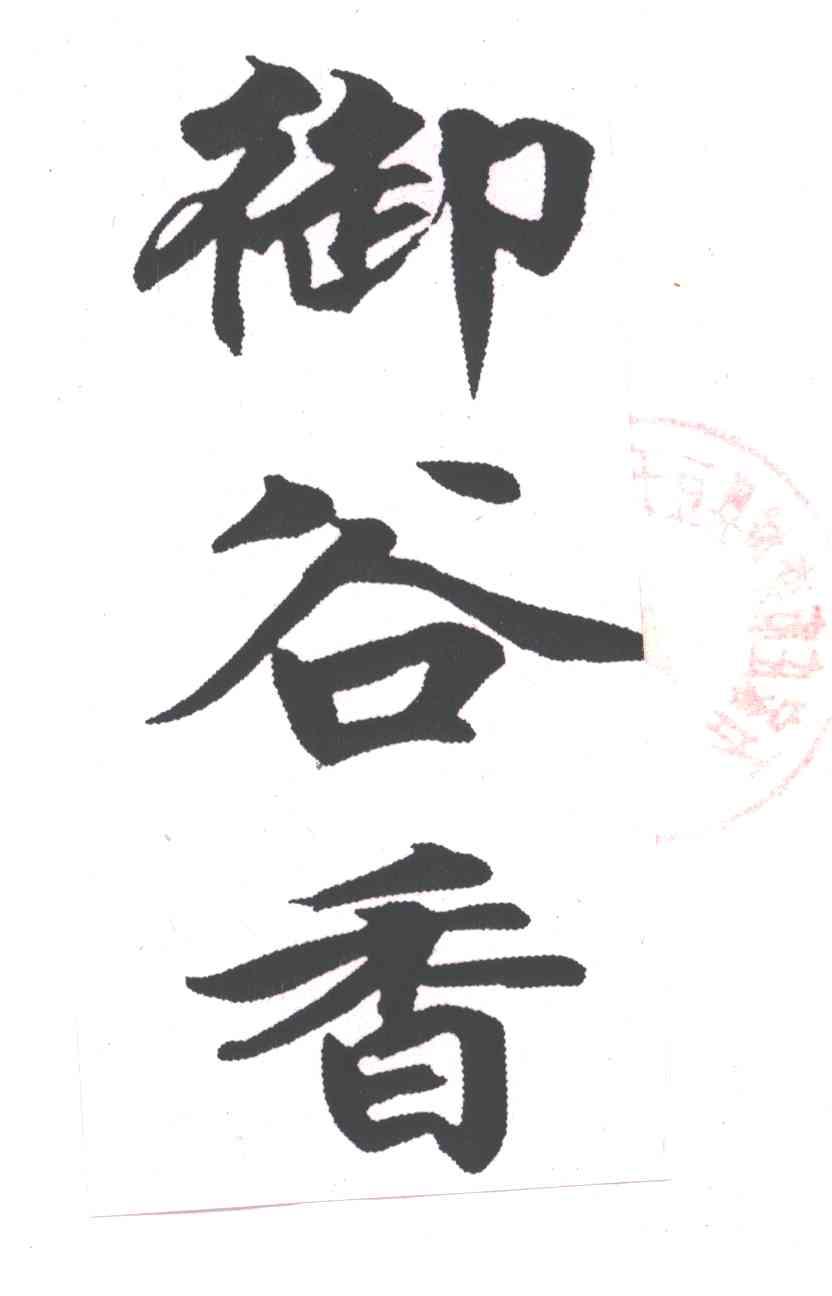 御谷香